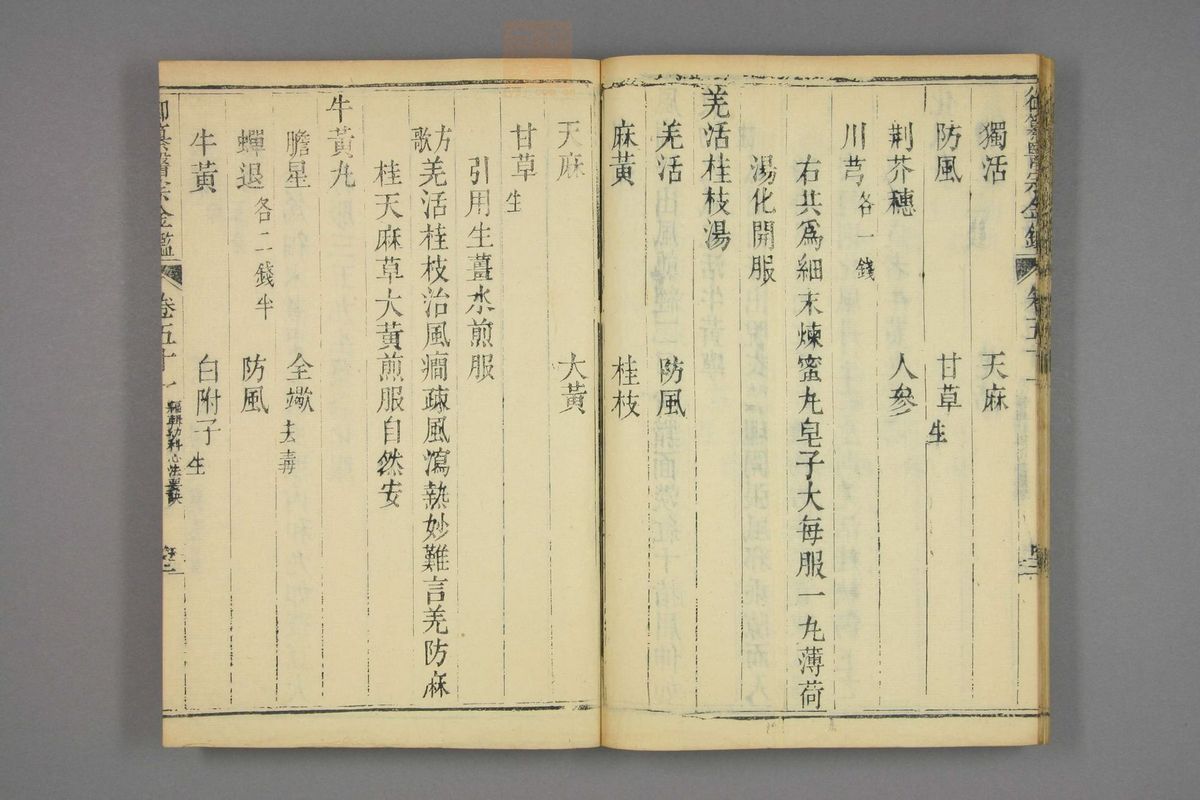 獨活　天麻
防風　甘草生
荆芥穗　人參
川芎各一錢
右共爲細末煉蜜丸皂子大每服一丸薄荷
湯化開服
羌活桂枝湯
羌活　防風
麻黃　桂枝
天麻　大黃
甘草生
引用生薑水煎服
方歌　羌活桂枝治風癇疎風瀉熱妙難言羌防麻
桂天麻草大黃煎服自然安
牛黃丸
膽星　全蠍去毒
蟬退各二錢半　防風
牛黃　白附子生
御纂醫宗金鑑　卷五十一　編輯幼科心法要訣